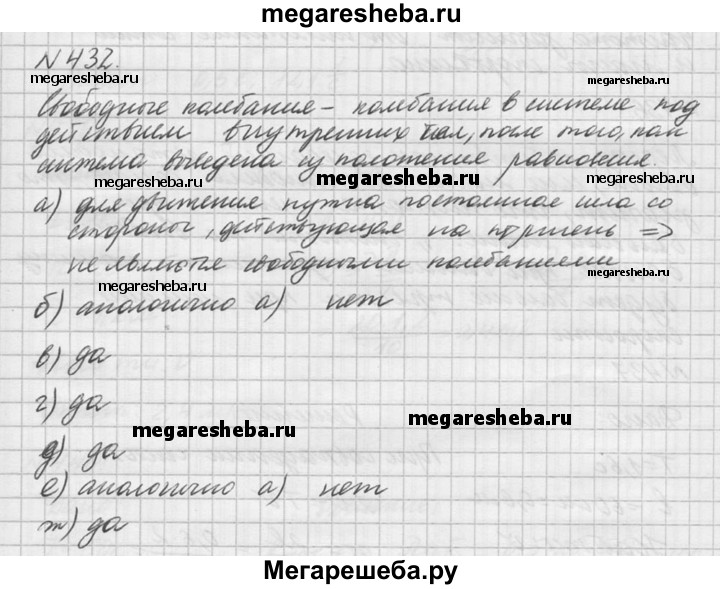 megaresheba.ru
N 432.
megaresheba.ru megaresheba.ru megaresheba.ru
Свободные колебания – колебания в системе под
действием внутренних сил, после того, как
система выведена из положения равновесия.
megaresheba.ru megaresheba.ru megaresheba.ru
а) для движения нужна постоянная сила со
стороны, действующая на поршень =>
не являются свободными колебаниями
megaresheba.ru megaresheba.ru
б) аналогично а) нет
в) да
г) да
megaresheba.ru megaresheba.ru
д) да
е) аналогично а) нет
ж) да
megaresheba.ru megaresheba.ru
Мегарешеба.ру